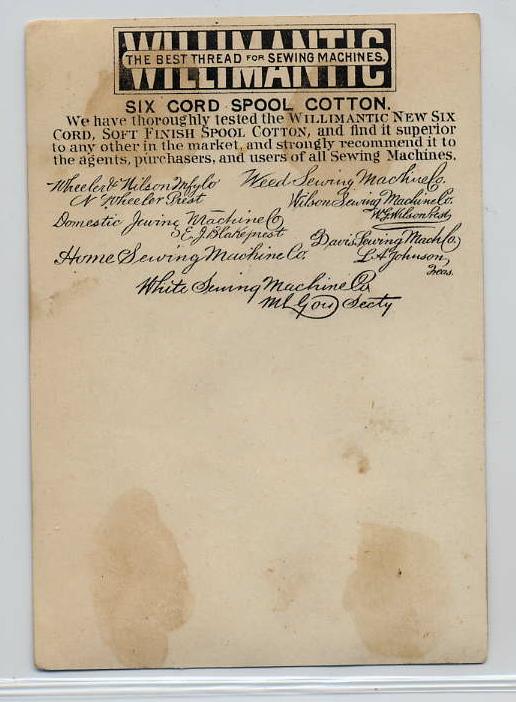 WILLIMANTIC
THE BEST THREAD FOR SEWING MACHINES.
SIX CORD SPOOL COTTON.
We have thoroughly tested the WILLIMANTIC NEW SIX
CORD, SOFT FINISH SPOOL COTTON, and find it superior
to any other in the market, and strongly recommend it to
the agents, purchasers, and users of all Sewing Machines.
Wheeler & Wilson Mfg Co
N Wheeler Prest
Weed Sewing Machine Co.
Wilson Sewing Machine Co.
W.G. Wilson Prest
Domestic Sewing Machine Co
E J Blake prest
Davis Sewing Mach Co,
L. A. Johnson,
Treas.
Home Sewing Machine Co.
White Sewing Machine Co
Secty